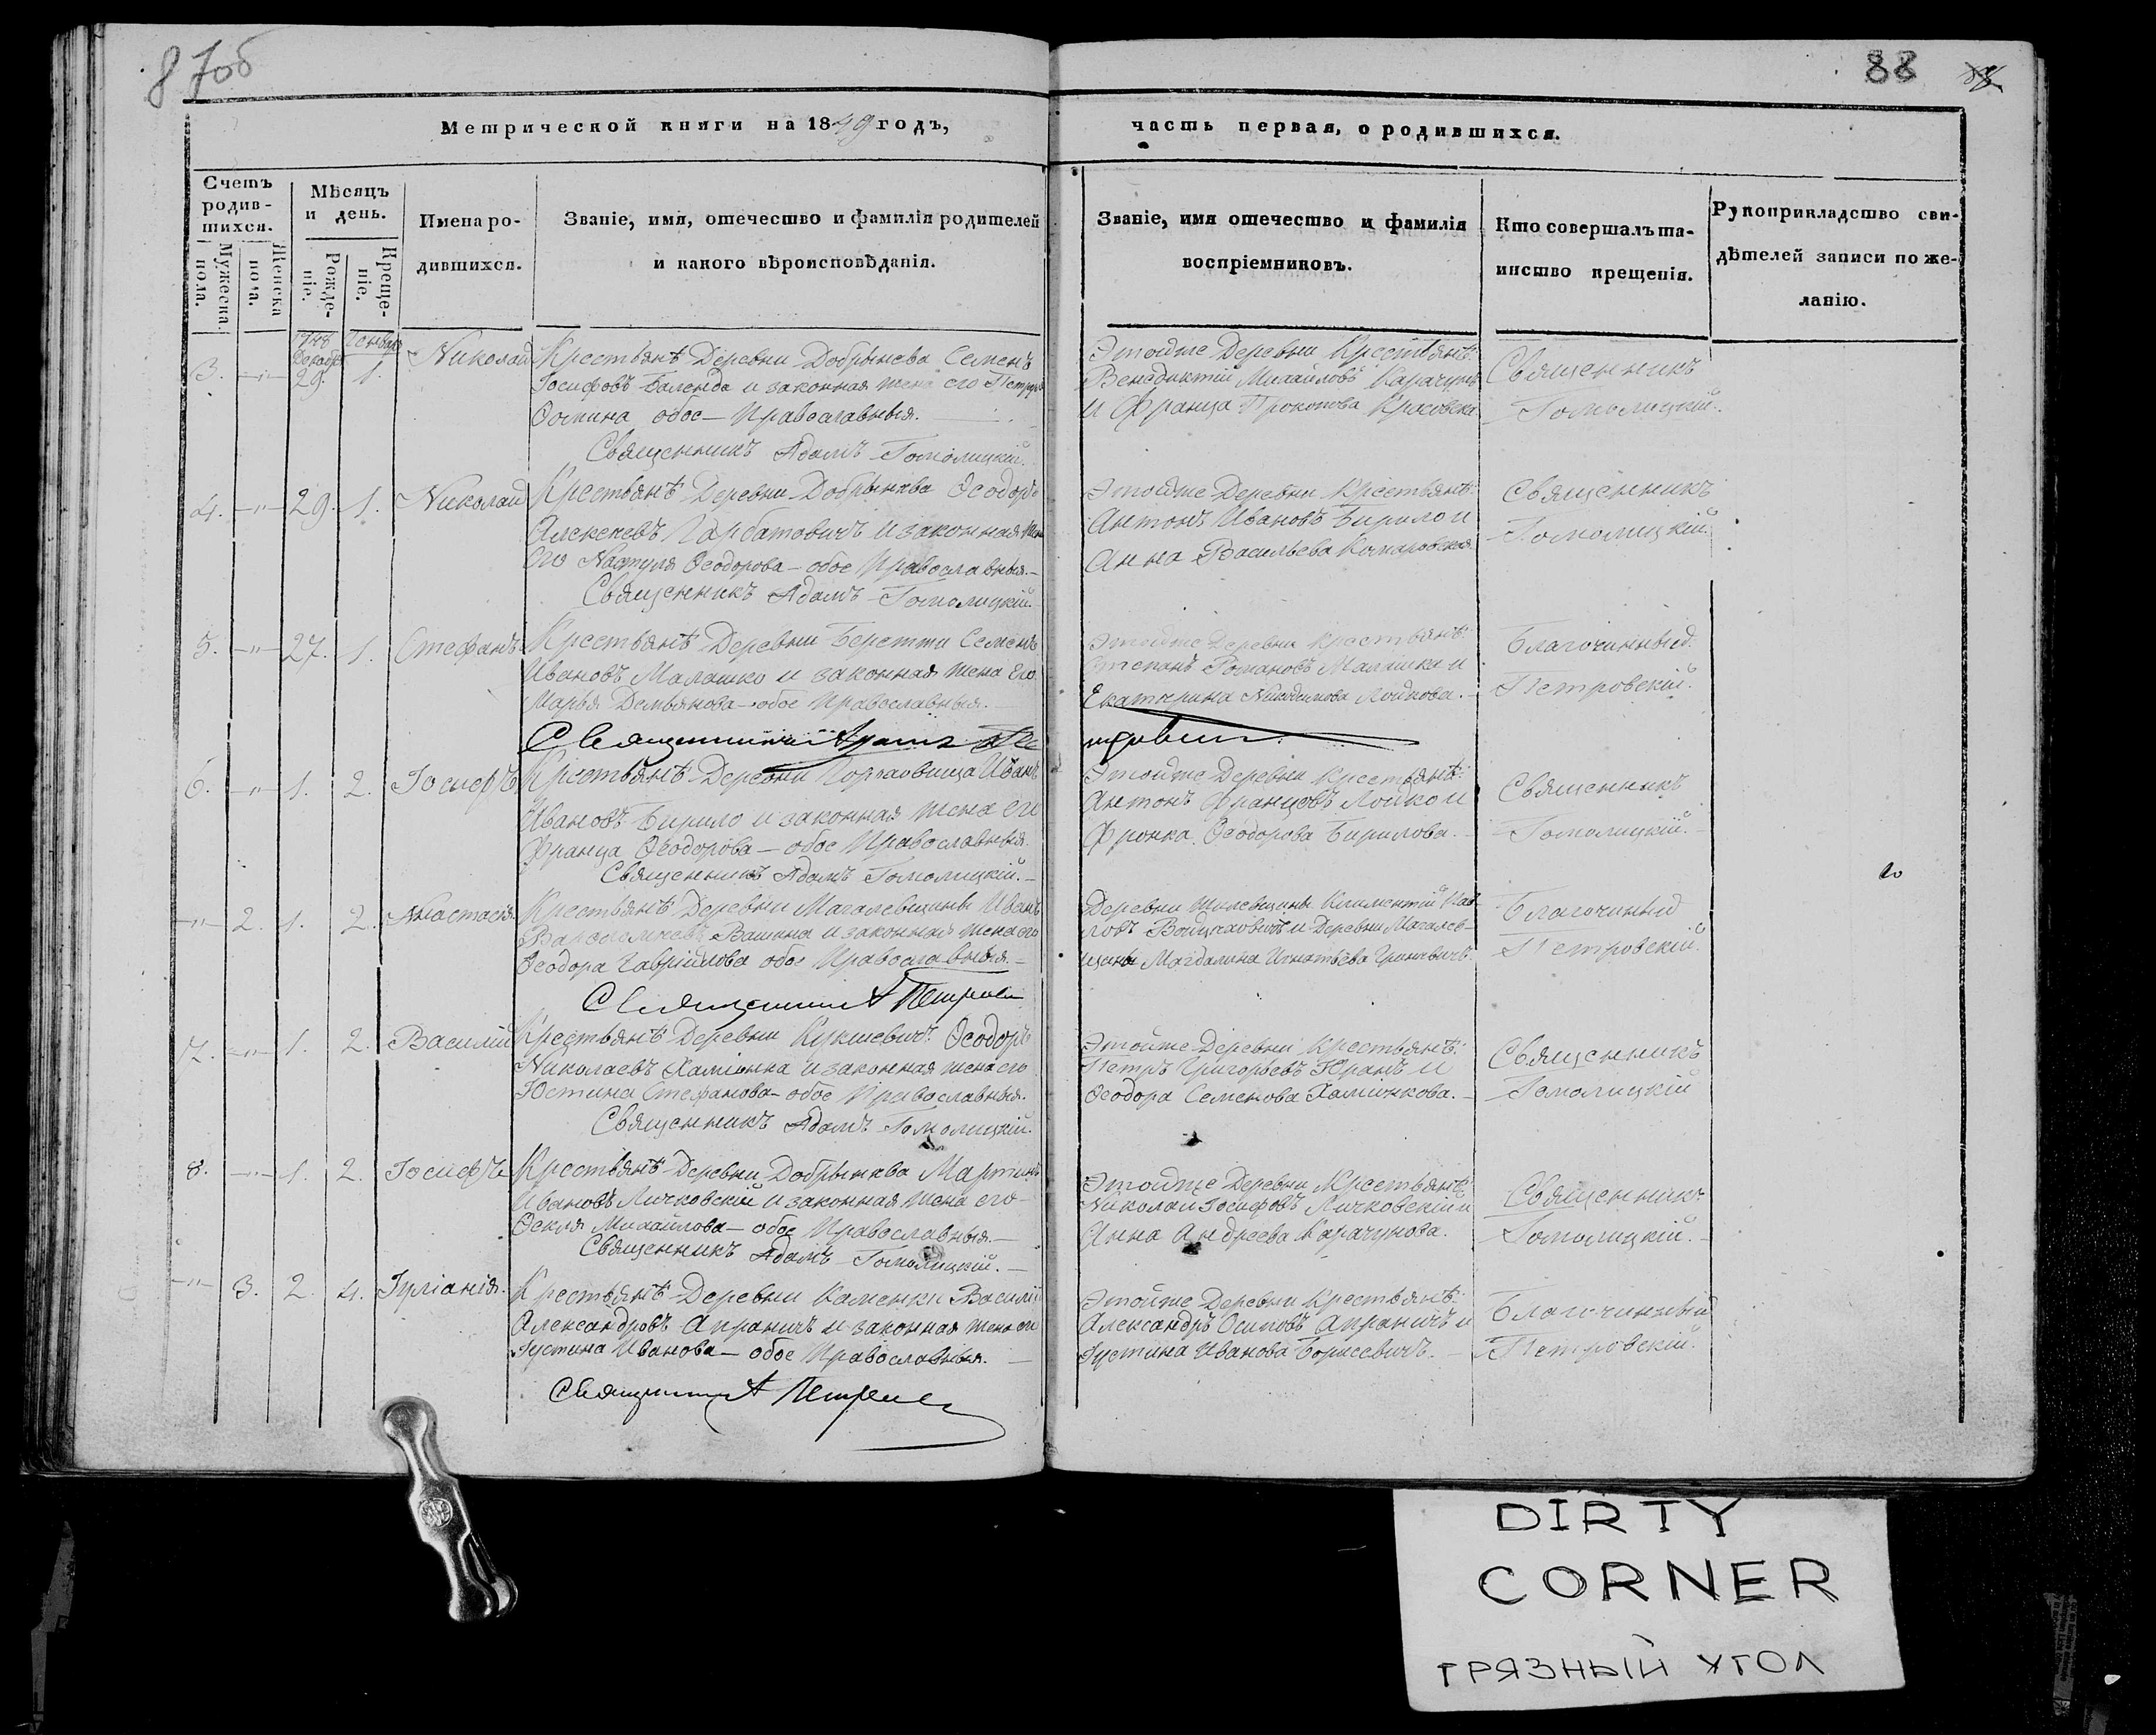 87об
88
Метрической книги на 1849 годъ,
часть первая, о родившихся.
Счетъ
родив-
шихся.
Мужеска
пола.
Женска
пола.
Мѣсяцъ
и день.
Рожде-
ніе.
Креще-
ніе.
Имена ро-
дившихся.
Званіе, имя, отечество и фамилія родителей
и какого вѣроисповѣданія.
Званіе, имя отечество и фамилія
воспріемниковъ.
Кто совершалъ та-
инство крещенія.
Рукоприкладство сви-
дѣтелей записи по же-
ланію.
3. -"- 29. 1. Николай
Крестьянѣ Деревни Добрынева Семенъ
Іосифовъ Баленда и законная жена его
Фомина обое Православныя.
Священникъ Адамъ Гомолицкій.
Этойже Деревни Крестьянѣ:
Венедиктій Михайловъ Карачунъ
и Франца Прокопова
Священникъ
Гомолицкій.
4. -"- 29. 1. Николай
Крестьянѣ Деревни Добрынева Ѳеодоръ
Алексеевъ Гарбатовичъ и законная жена
его Настуля Ѳеодорова - обое Православныя.
Священникъ Адамъ Гомолицкій.
Этойже Деревни Крестьянѣ:
Антонъ Ивановъ Бирило и
Анна Васильева Комаровская
Священникъ
Гомолицкій.
5. -"- 27. 1. Стефанъ
Крестьянѣ Деревни Беретти Семенъ
Ивановъ Малашко и законная жена его
Марья Демьянова - обое Православныя.
Священникъ
Этойже Деревни Крестьянѣ:
Степанъ Романовъ Малашка и
Екатерина Никодимова Лойкова.
Благочинный
Петровскій.
6. -"- 1. 2. Іосифъ
Крестьянѣ Деревни Иванъ
Ивановъ Бирило и законная жена его
Франца Ѳеодорова - обое Православныя.
Священникъ Адамъ Гомолицкій.
Этойже Деревни Крестьянѣ:
Антонъ Францовъ Лойко и
Фронка Ѳеодорова Бирилова.
Священникъ
Гомолицкій.
-"- 2. 1. 2. Анастасія
Крестьянѣ Деревни Магалевщины Иванъ
Варѳоломеевъ и законная жена его
Ѳеодора Гавріилова обое Православныя.
Священникъ А Петровскій
Деревни Климентій
ловъ и Деревни Магалев-
щины Магдалина Игнатьева Гриневичъ.
Благочинный
Петровскій.
7. -"- 1. 2. Василій
Крестьянѣ Деревни Кукшевичъ Ѳеодоръ
Николаевъ Хаміонка и законная жена его
Юстина Стефанова - обое Православныя.
Священникъ Адамъ Гомолицкій.
Этойже Деревни Крестьянѣ:
Петръ Григорьевъ Юранъ и
Ѳеодора Семенова Хаміонкова.
Священникъ
Гомолицкій
8. -"- 1. 2. Іосифъ
Крестьянѣ Деревни Добрынева Мартинъ
Ивановъ Личковскій и законная жена его
Ѳекля Михайлова - обое Православныя.
Священникъ Адамъ Гомолицкій.
Этойже Деревни Крестьянѣ:
Николай Іосифовъ Личковскій и
Анна Андреева Карачунова.
Священникъ
Гомолицкій.
-"- 3. 2. 4. Іуліанія.
Крестьянѣ Деревни Каменки Василій
Александровъ Апраничъ и законная жена его
Іустина Иванова - обое Православныя.
Священникъ А
Этойже Деревни Крестьянѣ:
Александръ Осиповъ Апраничъ и
Іустина Иванова Борисевичъ.
Благочинный
Петровскій.
DIRTY
CORNER
ГРЯЗНЫЙ УГОЛ